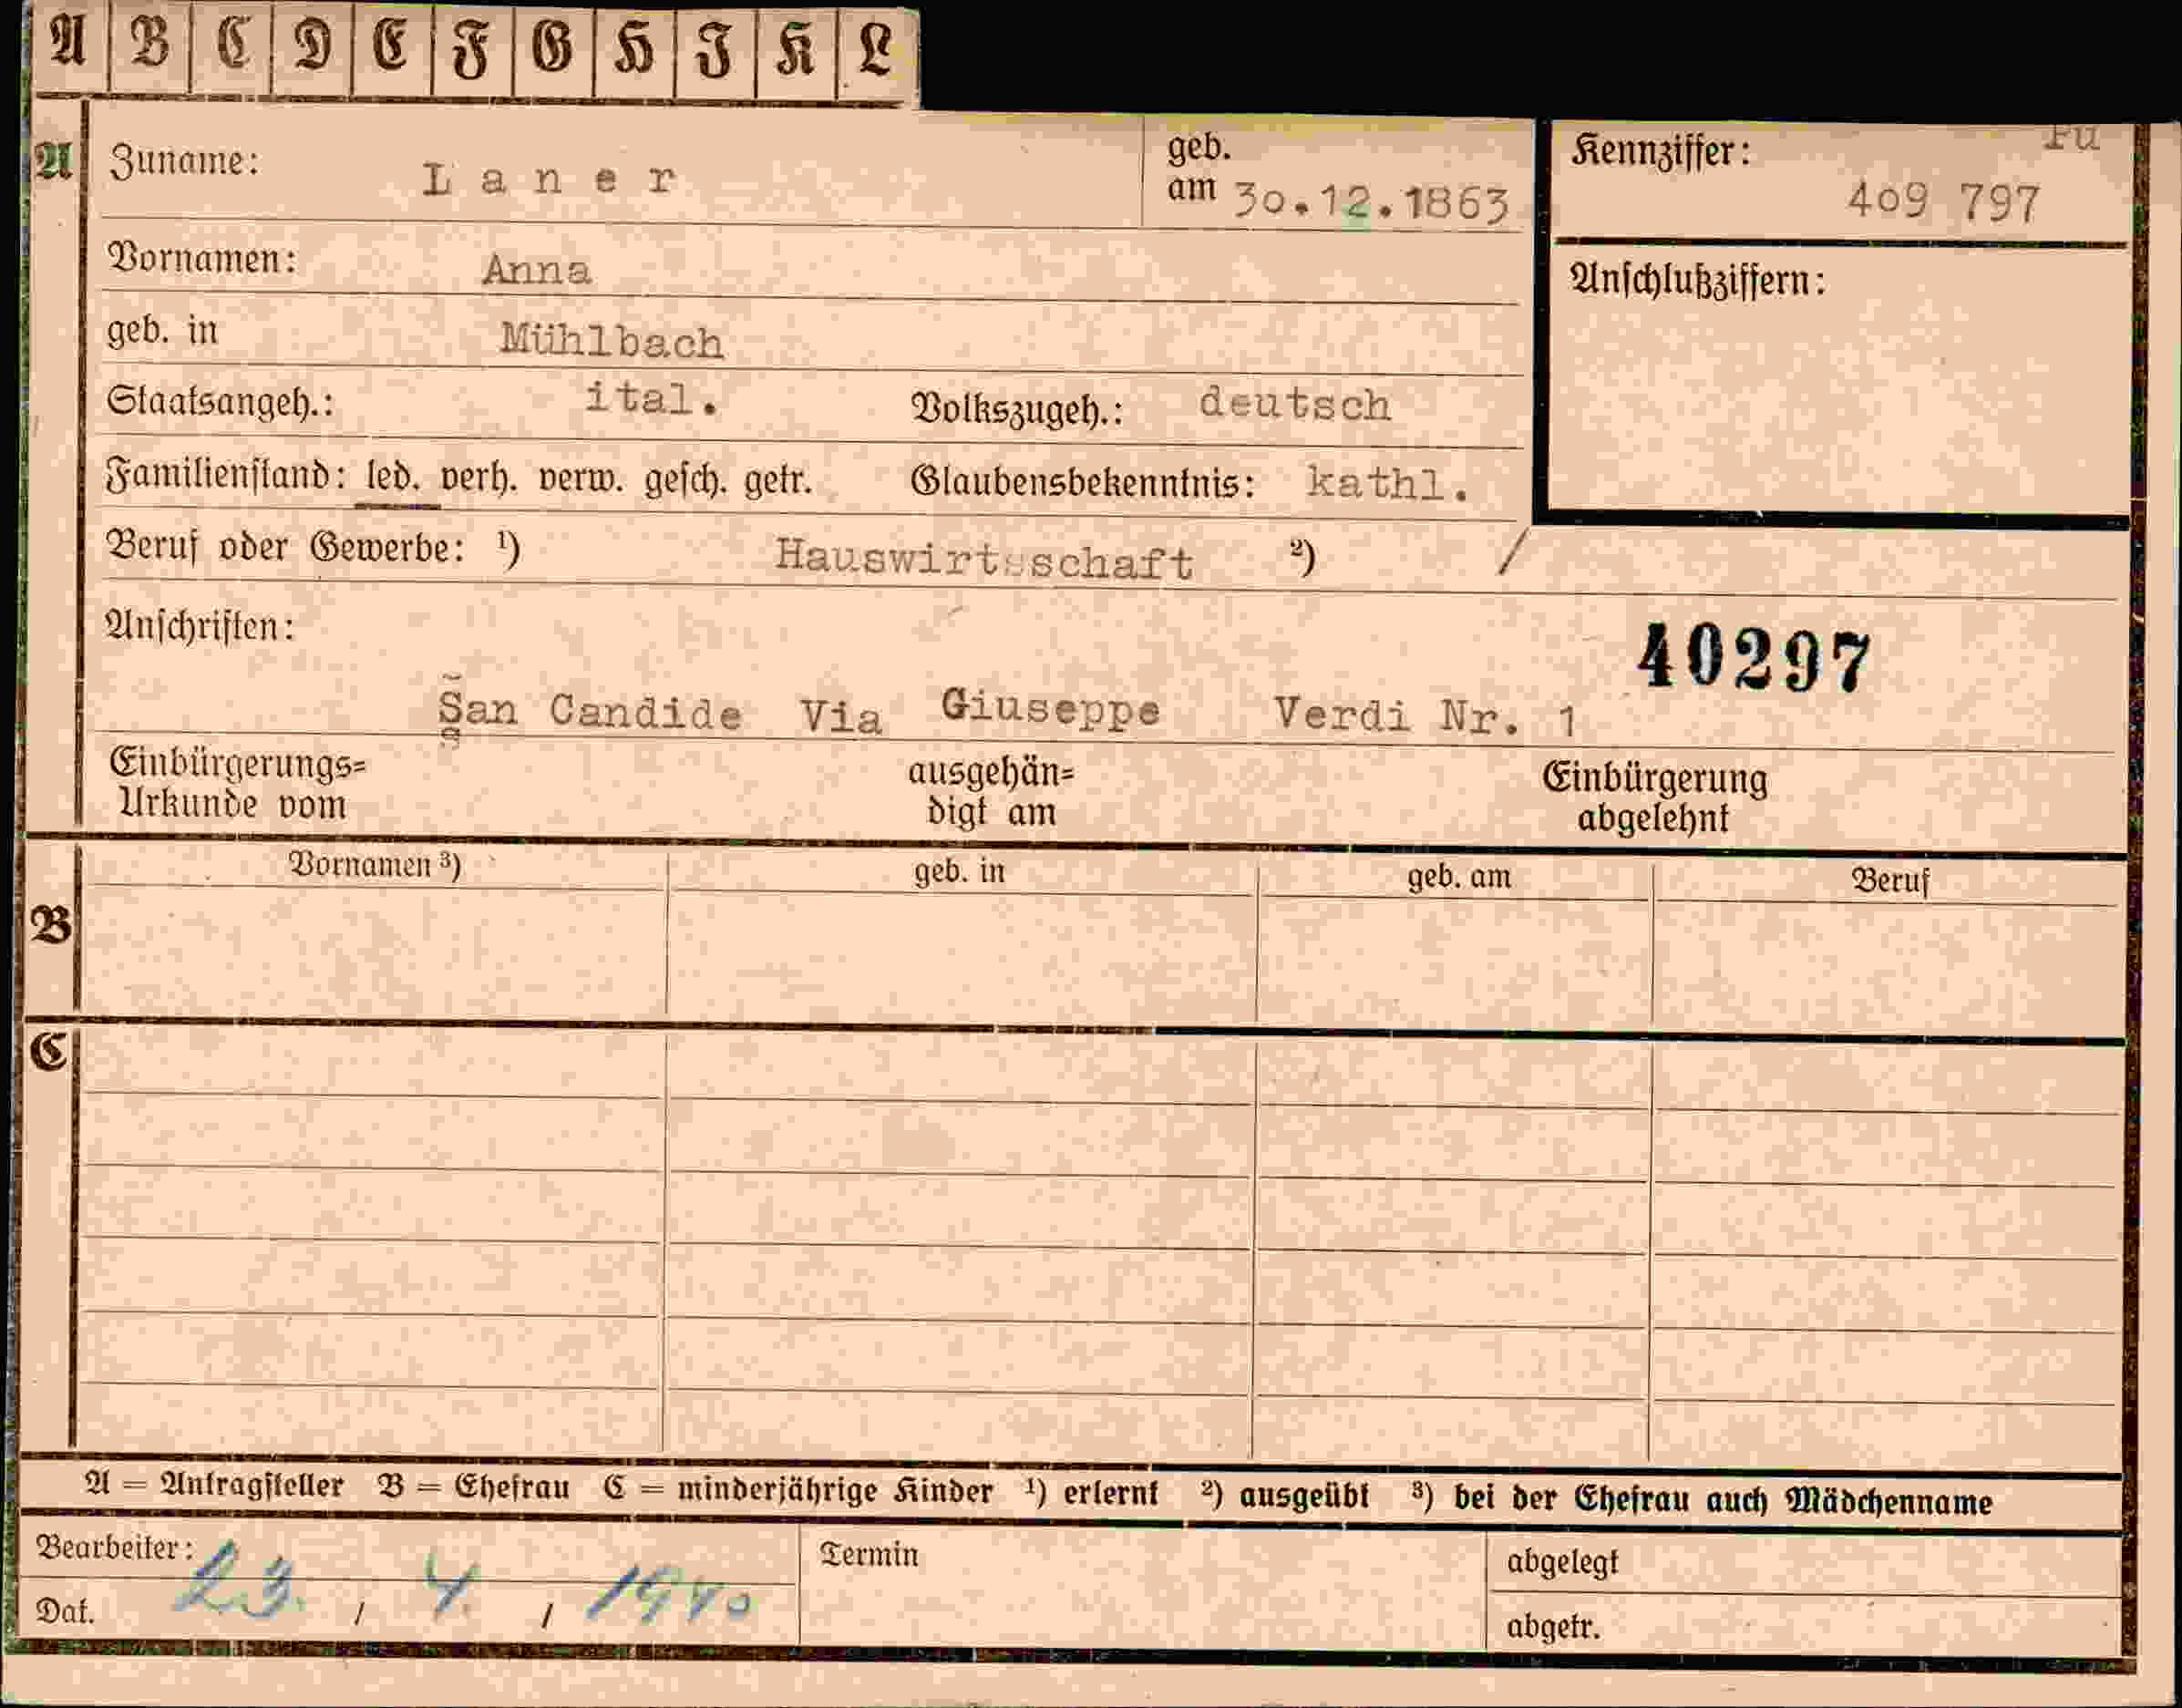 A B C D E F G H I K L
A Zuname: Laner geb. am 30.12.1863
Kennziffer: Fu
409 797
Vornamen: Anna
Anschlußziffern:
geb. in Mühlbach
Staatsangeh.: ital. Volkszugeh.: deutsch
Familienstand: led. verh. verw. gesch. getr. Glaubensbekenntnis: kathl.
Beruf oder Gewerbe: ¹) Hauswirtsschaft ²) /
Anschriften:
40297
San Candide Via Giuseppe Verdi Nr. 1
Einbürgerungs= ausgehän= Einbürgerung
Urkunde vom digt am abgelehnt
Vornamen ³) geb. in geb. am Beruf
B
C
A = Antragsteller B = Ehefrau C = minderjährige Kinder ¹) erlernt ²) ausgeübt ³) bei der Ehefrau auch Mädchenname
Bearbeiter: Termin abgelegt
Dat. 23. / 4. / 1940 abgetr.